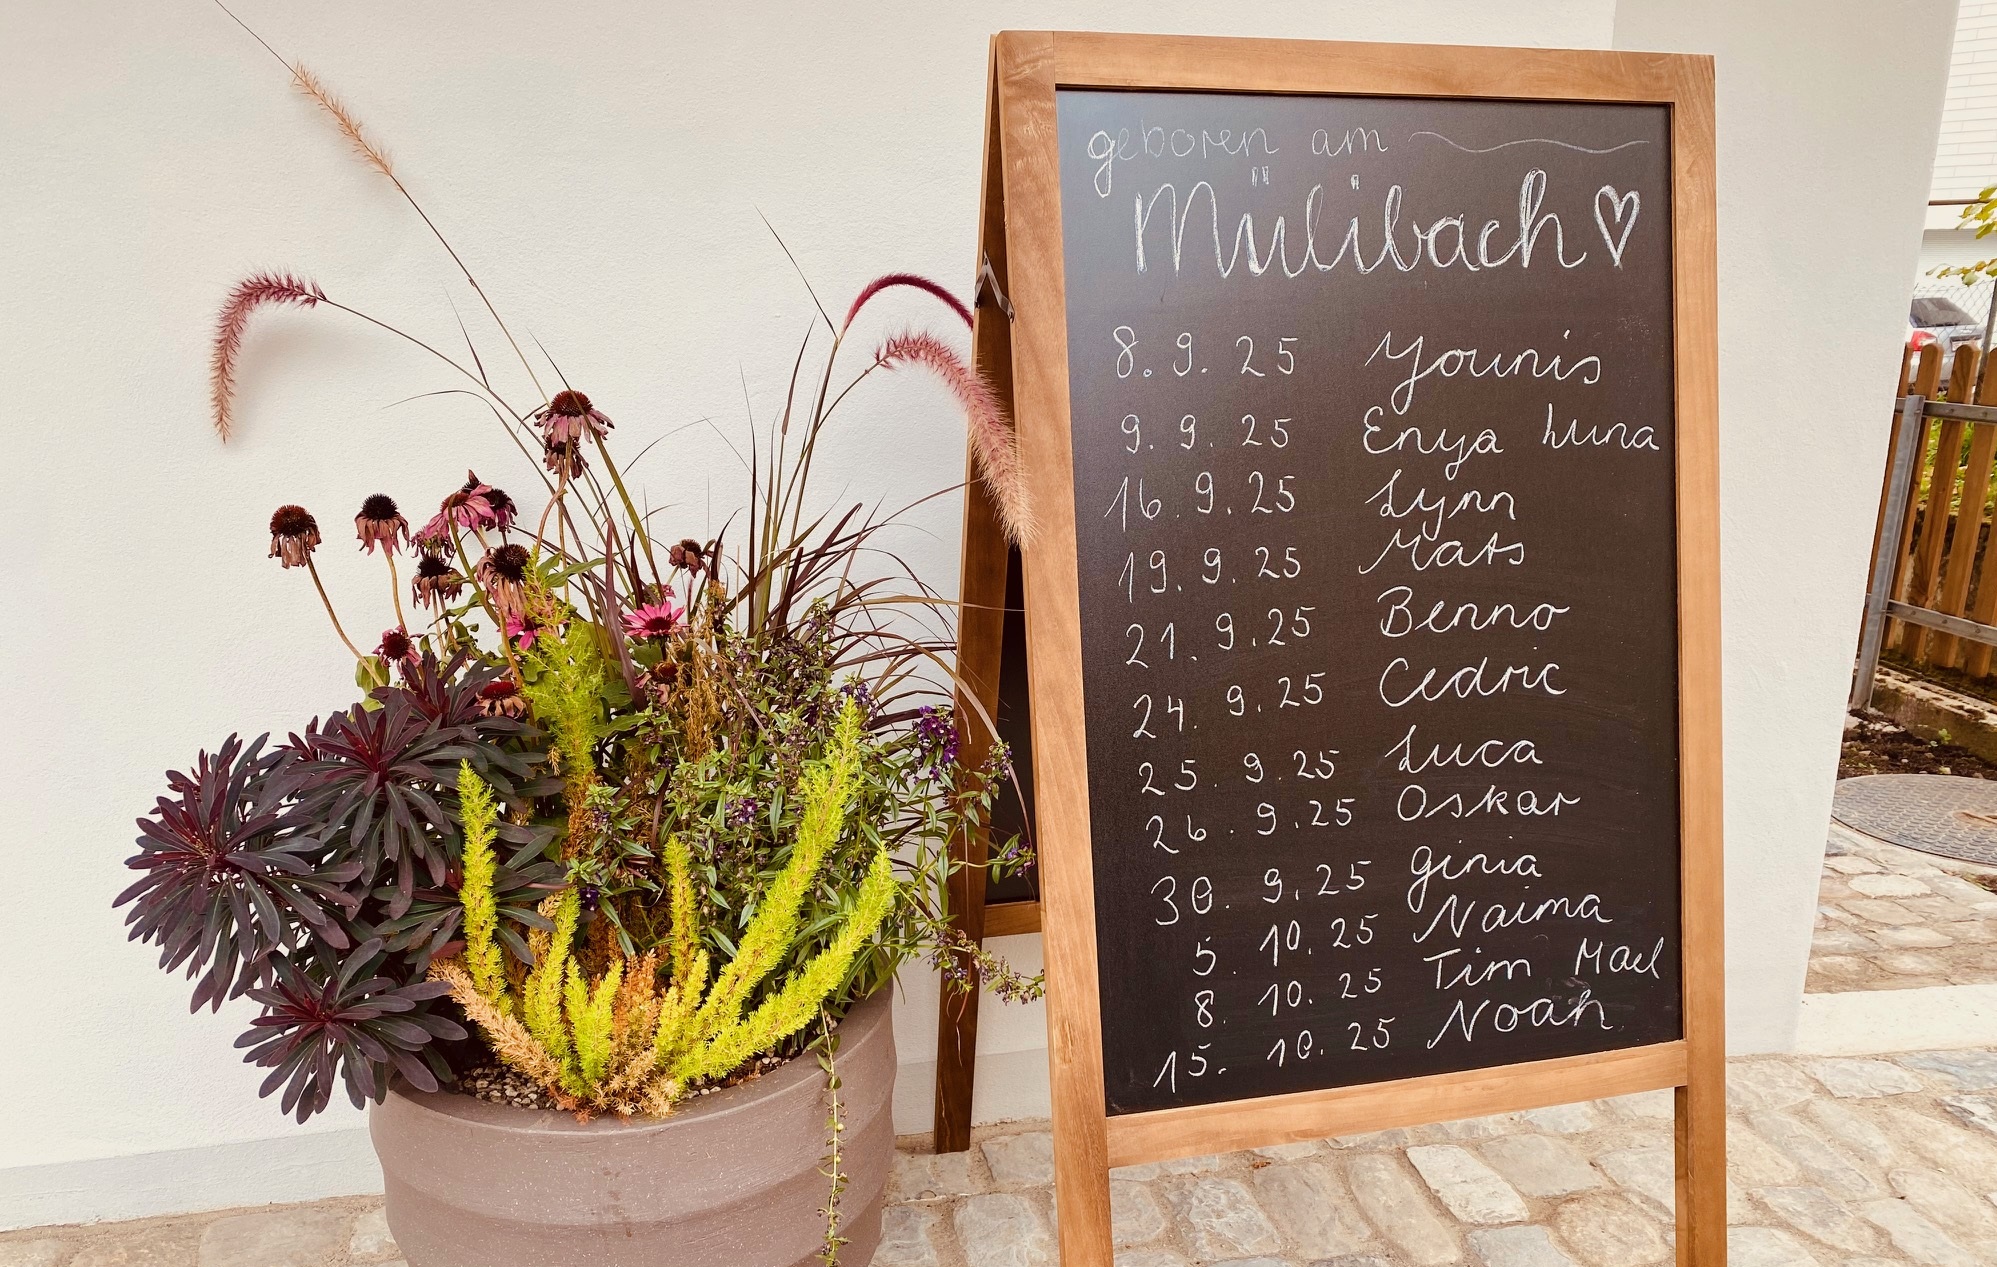 geboren am
Mülibach
8.9.25 Younis
9.9.25 Enya Luna
16.9.25 Lynn
19.9.25 Mats
21.9.25 Benno
24.9.25 Cedric
25.9.25 Luca
26.9.25 Oskar
30.9.25 Ginia
5.10.25 Naima
8.10.25 Tim Mael
15.10.25 Noah